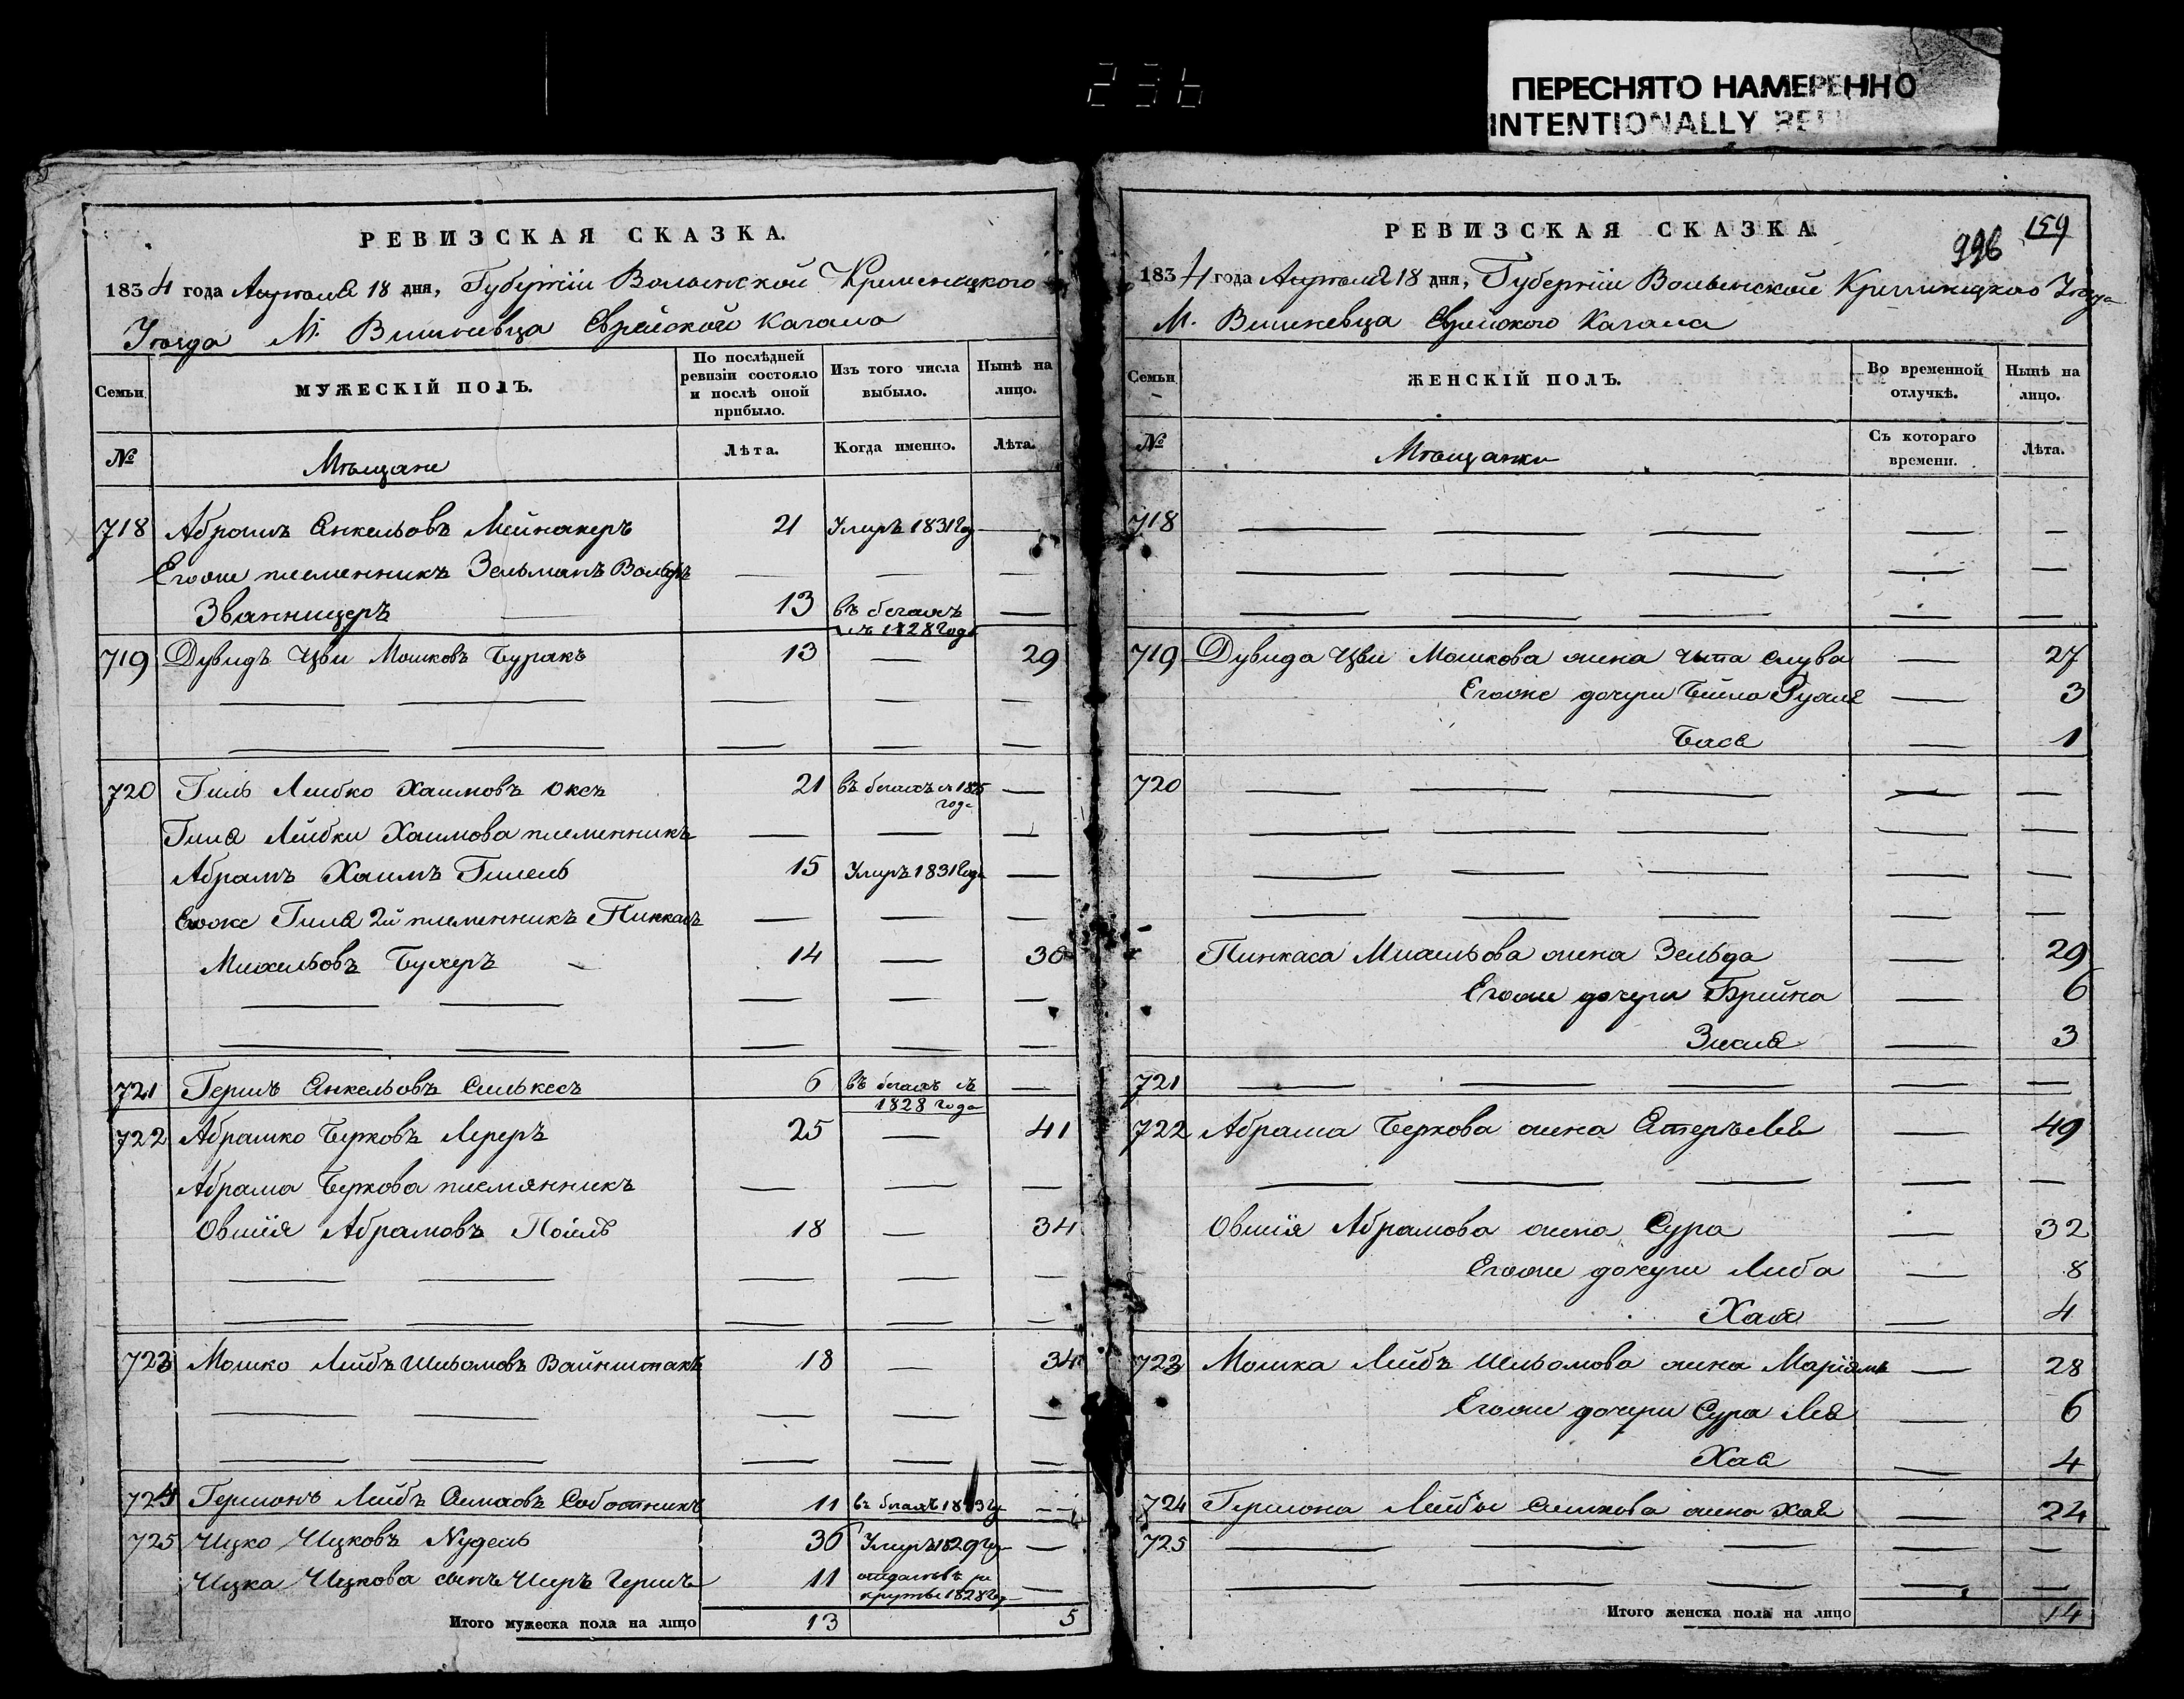 236
ПЕРЕСНЯТО НАМЕРЕННО
INTENTIONALLY
РЕВИЗСКАЯ СКАЗКА.
1834 года Апреля 18 дня, Губерніи Волынской Кременецкого
Уезда М. Вишневца Еврейского Кагала
Семьи
МУЖЕСКІЙ ПОЛЪ.
По послѣдней ревизіи состояло и послѣ оной прибыло.
Изъ того числа выбыло.
Нынѣ на лицо.
№
Мѣщане
Лѣта.
Когда именно.
Лѣта.
718 Абрамъ Янкельовъ Мейнакеръ 21 Умеръ 1831 год —
Егоже племенникъ Зельманъ Вольфъ — — —
Званницеръ — 13 въ бегахъ съ 1828 года —
719 Дувидъ Цви Мошковъ Буракъ 13 — 29
— — — — —
— — — — —
720 Гиль Лейбко Хаимовъ Оксъ 21 въ бегахъ съ 1825 года —
Гиля Лейбки Хаимова племенникъ — — —
Абрамъ Хаимъ Гилель 15 Умеръ 1831 года —
Егоже Гиля 2й племенникъ Пинкасъ — — —
Михельовъ Бухеръ — 14 — 30
— — — — —
— — — — —
721 Гершъ Янкельовъ Силькесъ 6 въ бегахъ съ 1828 года —
722 Абрамко Берковъ Лереръ 25 — 41
Абрама Беркова племянникъ — — —
Овшія Абрамовъ 18 — 34
— — — — —
— — — — —
723 Мошко Лейбъ Шльомовъ Вайнштакъ 18 — 34
— — — — —
— — — — —
724 Гершонъ Лейбъ Симховъ Соботникъ 11 въ бегахъ —
725 Ицко Ицковъ Nудель 36 Умеръ 1829 год —
Ицка Ицкова сынъ Гершъ 11 отданъ въ рекруты 1828 год —
Итого мужеска пола на лицо 13 5
РЕВИЗСКАЯ СКАЗКА
996 159
1834 года Апреля 18 дня, Губерніи Волынской Кременецкого Уезда
М. Вишневца Еврейского Кагала
Семьи
ЖЕНСКІЙ ПОЛЪ.
Во временной отлучкѣ.
Нынѣ на лицо.
№
Мѣщанки
Съ котораго времени.
Лѣта.
718 — — — — —
— — — — —
— — — — —
719 Дувида Цви Мошкова жена Слува — 27
Егоже дочери Бейла Рухля — 3
Бася — 1
720 — — — — —
— — — — —
— — — — —
— — — — —
Пинкаса Михельова жена Зельда — 29
Егоже дочери Брейна — 6
Зисля — 3
721 — — — — —
722 Абрама Беркова жена Эстеръ Лея — 49
— — — — —
Овшія Абрамова жена Сура — 32
Егоже дочери Либа — 8
Хая — 4
723 Мошка Лейбъ Шльомова жена Маріямъ — 28
Егоже дочери Сура Лея — 6
Хая — 4
724 Гершона Лейбы Симхова жена Хая — 24
725 — — — — —
— — — — —
Итого женска пола на лицо 14